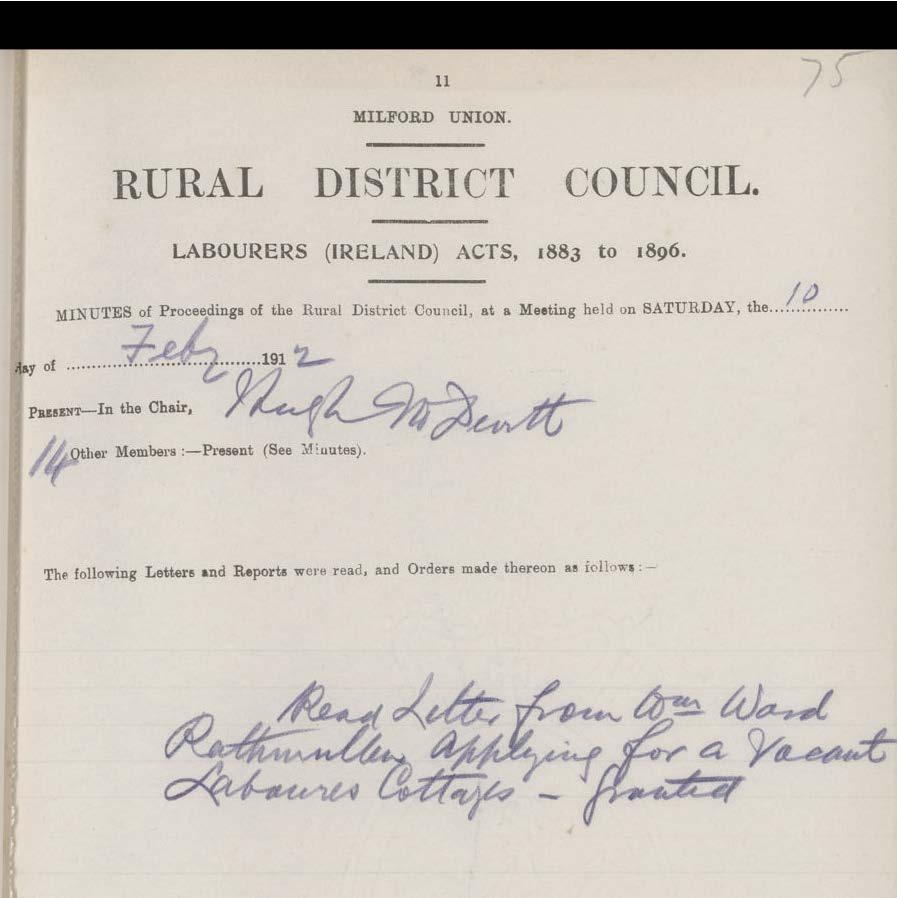 75
11
MILFORD UNION.
RURAL DISTRICT COUNCIL.
LABOURERS (IRELAND) ACTS, 1883 to 1896.
MINUTES of Proceedings of the Rural District Council, at a Meeting held on SATURDAY, the....10....
day of ....Feby....1912
PRESENT—In the Chair, Hugh McDevitt
14 Other Members :—Present (See Minutes).
The following Letters and Reports were read, and Orders made thereon as follows :—
Read Letter from Wm Ward
Rathmullen Applying for a Vacant
Laboures Cottages – Granted